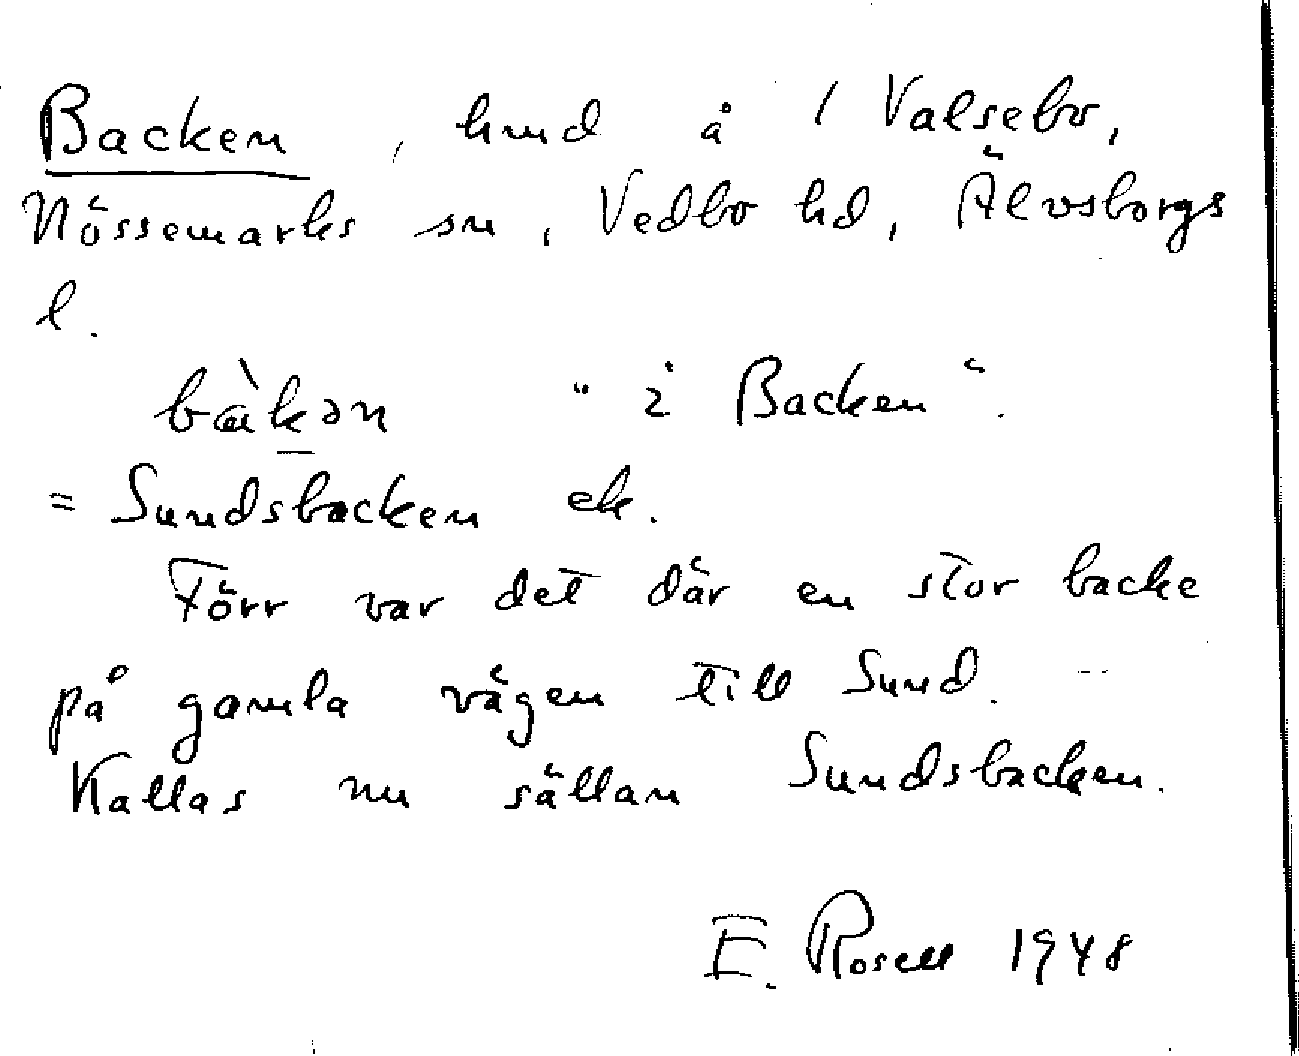 Backen, hmd å 1 Valsebo,
Nössemarks sn, Vedbo hd, Älvsborgs
l.
bàkən "i Backen".
= Sundsbacken ek.
Förr var det där en stor backe
på gamla vägen till Sund. --
Kallas nu sällan Sundsbacken.
E. Rosell 1948